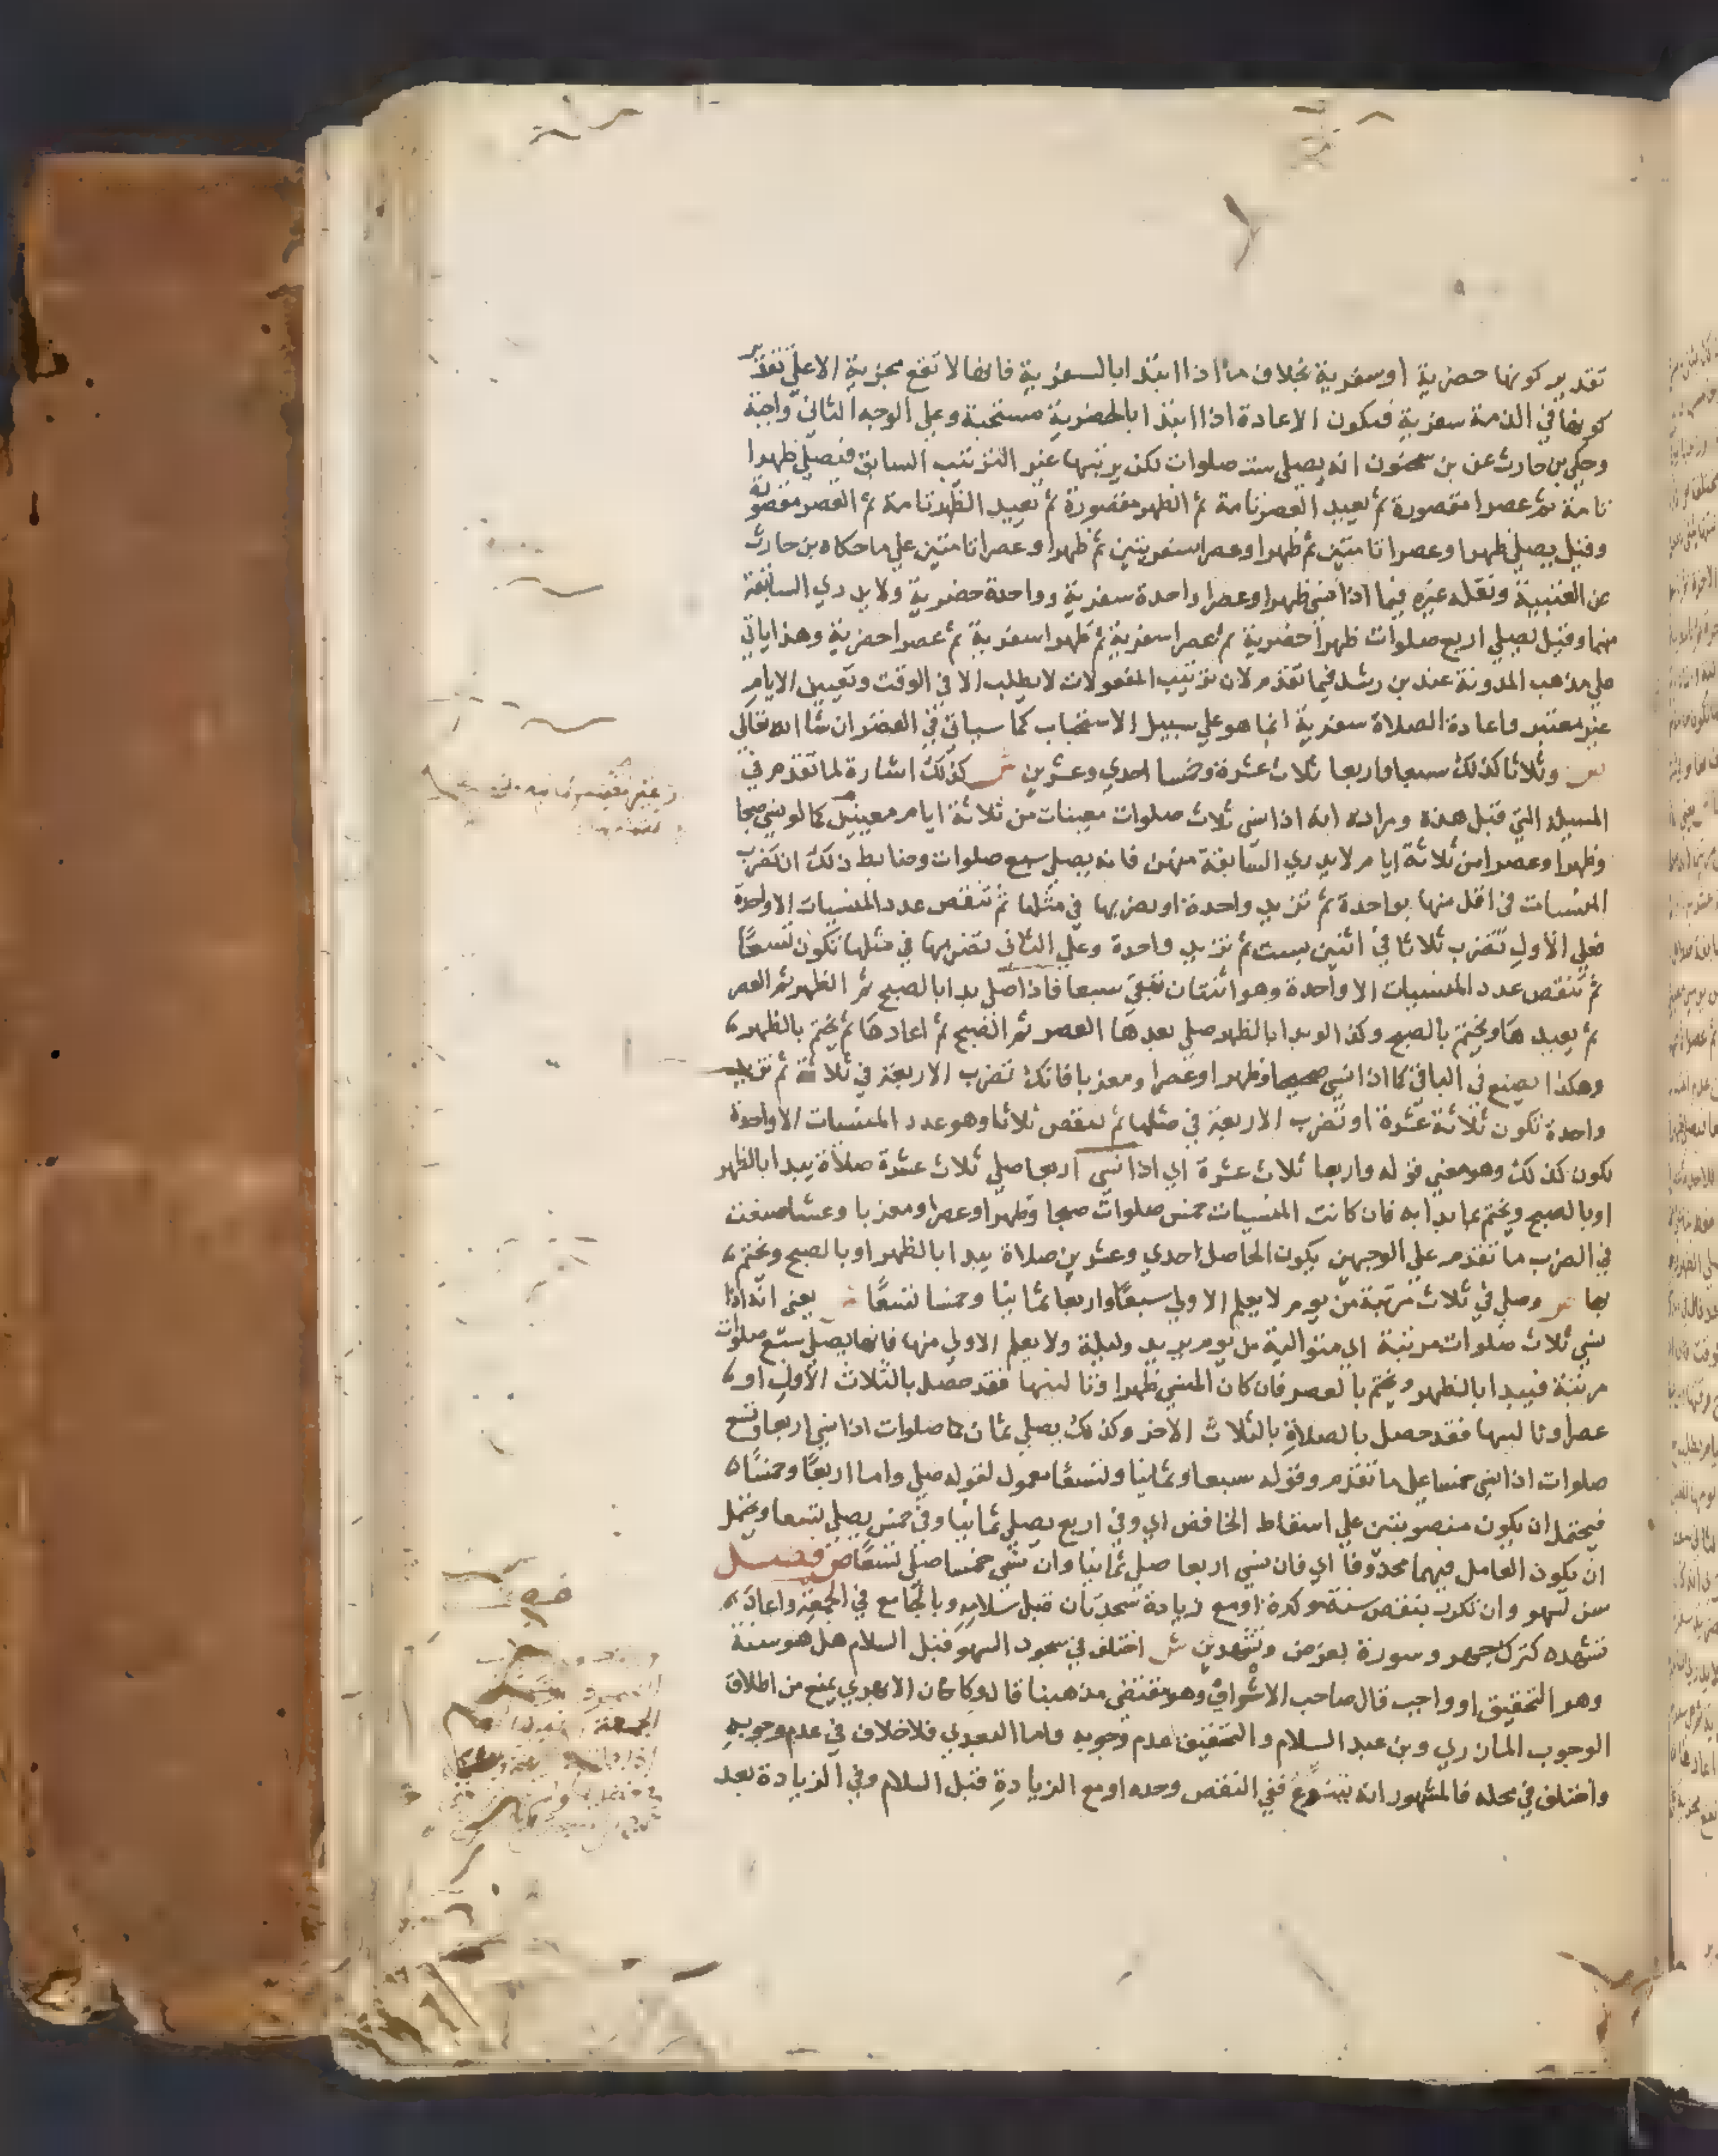 تقدير كونها حضرية او سفرية بخلاف ما اذا ابتدا بالسفرية فانها لا تقع مجزية الا علي تقدير
كونها في الذمة سفرية فتكون الاعادة اذا ابتدا بالحضرية مستحبة وعلي الوجه الثاني واجبة
وحكي بن حارث عن بن سحنون انه يصلي ست صلوات لكن يرتبها غير الترتيب السابق فيصلي ظهرا
تامة ثم عصرا مقصورة ثم يعيد العصر تامة ثم الظهر مقصورة ثم يعيد الظهر تامة ثم العصر مقصورة
وقيل يصلي ظهرا وعصرا تامتين ثم ظهرا وعصرا سفريتين ثم ظهرا وعصرا تامتين علي ما حكاه بن حارث
عن العتبية ونقله غيره فيما اذا نسي ظهرا وعصرا واحدة سفرية وواحدة حضرية ولا يدري السابقة
منهما وقيل يصلي اربع صلوات ظهرا حضرية ثم عصرا سفرية ثم ظهرا سفرية ثم عصرا حضرية وهذا ياتي
علي مذهب المدونة عند بن رشد فيما تقدم لان ترتيب المفعولات لا يطلب الا في الوقت وتعيين الايام
غير معتبر واعادة الصلاة سفرية انما هو علي سبيل الاستحباب كما سياتي في القصر ان شا الله تعالى
ص وثلاثا كذلك سبعا واربعا ثلاث عشرة وخمسا احدي وعشرين ش كذلك اشارة لما تقدم في
المسيلة التي قبل هذه ومراده انه اذا نسي ثلاث صلوات معينات من ثلاثة ايام معينين كما لو نسي صبحا
وظهرا وعصرا من ثلاثة ايام لا يدري السابقة منهن فانه يصلي سبع صلوات وضابط ذلك ان تضرب
المنسيات في اقل منها بواحدة ثم تزيد واحدة او يضربها في مثلها ثم تنقص عدد المنسيات الا واحدة
فعلي الاول تضرب ثلاثا في اثنين بست ثم تزيد واحدة وعلي الثاني تضربها في مثلها تكون تسعا
ثم تنقص عدد المنسيات الا واحدة وهو اثنتان تبقي سبعا فاذا صلي بدا بالصبح ثم الظهر ثم العصر
ثم يعيدها ويختم بالصبح وكذا لو بدا بالظهر صلي بعدها العصر ثم الصبح ثم اعادها ثم يختم بالظهر
وهكذا يصنع في الباقي كما اذا نسي صبحا وظهرا وعصرا ومغربا فانك تضرب الاربعة في ثلاثة ثم تزيد
واحدة تكون ثلاثة عشرة او تضرب الاربعة في مثلها ثم تنقص ثلاثا وهو عدد المنسيات الا واحدة
تكون كذلك وهو معني قوله واربعا ثلاث عشرة اي اذا نسي اربعا صلي ثلاث عشرة صلاة يبدا بالظهر
او بالصبح ويختم بما بدا به فان كانت المنسيات خمس صلوات صبحا وظهرا وعصرا ومغربا وعشا صنعت
في الضرب ما تقدم علي الوجهين يكون الحاصل احدي وعشرين صلاة يبدا بالظهر او بالصبح ويختم
بها ص وصلي في ثلاث مرتبة من يوم لا يعلم الاولي سبعا واربعا ثمانيا وخمسا تسعا ش يعني انه اذا
نسي ثلاث صلوات مرتبة اي متوالية من يوم يريد وليلة ولا يعلم الاولي منها فانها يصلي سبع صلوات
مرتبة فيبدا بالظهر ويختم بالعصر فان كان المنسي ظهرا وتالييها فقد حصل بالثلاث الاول او
عصرا وتالييها فقد حصل بالصلاة بالثلاث الاخر وكذلك يصلي ثمان صلوات اذا نسي اربعا وتسع
صلوات اذا نسي خمسا علي ما تقدم وقوله سبعا وثمانيا وتسعا معمول لقوله صلي واما اربعا وخمسا
فيحتمل ان يكون منصوبتين علي اسقاط الخافض اي وفي اربع يصلي ثمانيا وفي خمس يصلي تسعا ويحتمل
ان يكون العامل فيهما محذوفا اي فان نسي اربعا صلي ثمانيا وان نسي خمسا صلي تسعا ص فصل
سن لسهو وان تكرر بنقص سنة موكدة او مع زيادة سجدتان قبل سلامه وبالجامع في الجمعة واعاد
تشهده كترك جهر وسورة بفرض وتشهدين ش اختلف في سجود السهو قبل السلام هل هو سنة
وهو التحقيق او واجب قال صاحب الاشراف وهو مقتضي مذهبنا قال وكان الابهري يمنع من اطلاق
الوجوب المازري وبن عبد السلام والتحقيق عدم وجوبه واما البعدي فلا خلاف في عدم وجوبه
واختلف في محله فالمشهور انه يتنوع ففي النقص وحده او مع الزيادة قبل السلام وفي الزيادة بعد